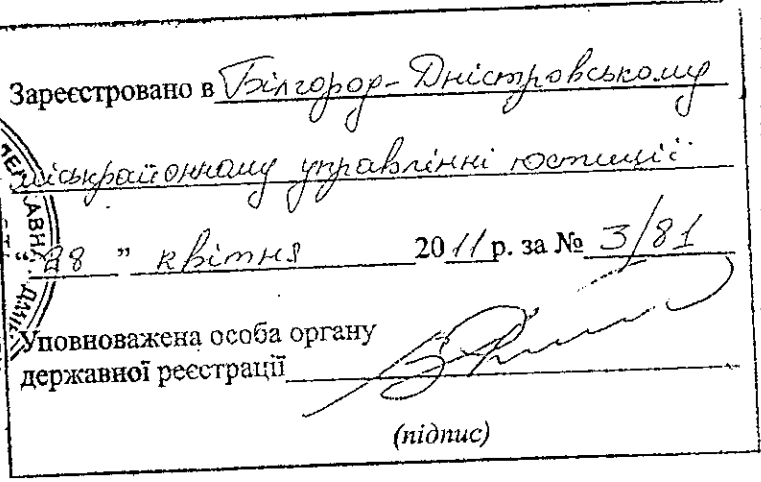 Зареєстровано в Білгород-Дністровському
міськрайонному управлінні юстиції
"28" квітня 2011 р. за № 3/81
Уповноважена особа органу
державної реєстрації
(підпис)